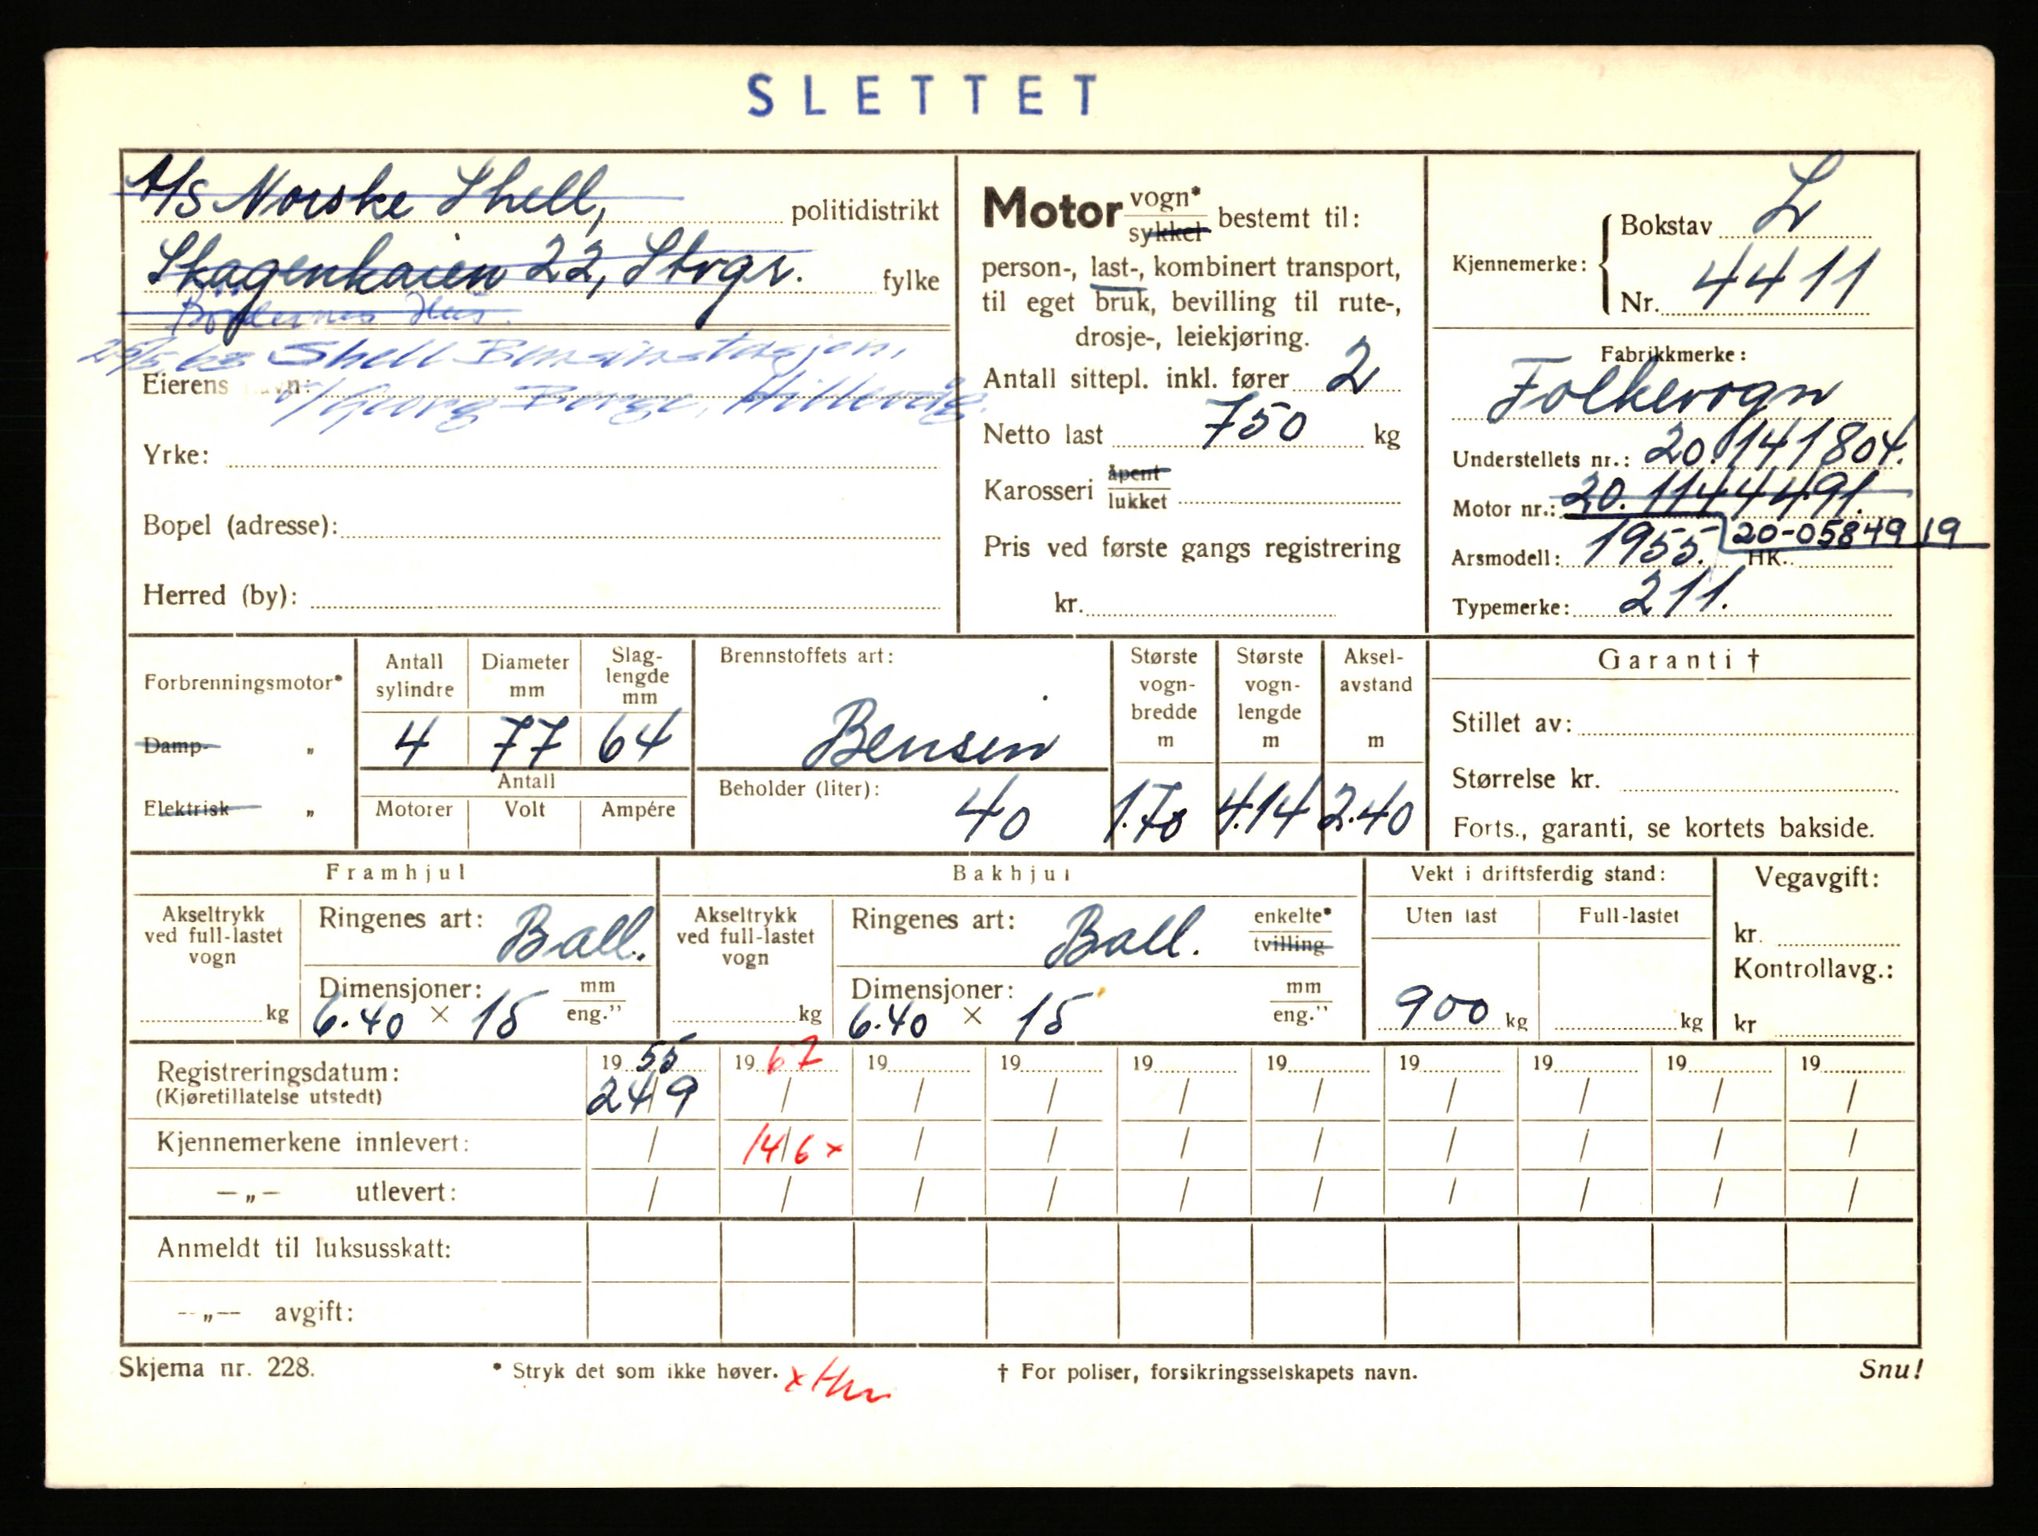 SLETTET
A/S Norske Shell, politidistrikt
Skagenkaien 22, Stvgr. fylke
25/5.63 Shell Bensinstasjon,
Eierens navn: Hillevåg.
Yrke:
Bopel (adresse):
Herred (by):
Motor vogn* sykkel bestemt til:
person-, last-, kombinert transport,
til eget bruk, bevilling til rute-,
drosje-, leiekjøring.
Antall sittepl. inkl. fører 2
Netto last 750 kg
Karosseri åpent lukket
Pris ved første gangs registrering
kr.
Kjennemerke: Bokstav L
Nr. 4411
Fabrikkmerke:
Folkevogn
Understellets nr.: 20.141804.
Motor nr.: 20.1144491.
20-0584919
Årsmodell: 1955. HK.
Typemerke: 211.
Forbrenningsmotor*
Damp- „
Elektrisk „
Antall sylindre
Diameter mm
Slag-lengde mm
4 77 64
Antall
Motorer Volt Ampére
Brennstoffets art:
Bensin
Beholder (liter):
40
Største vogn-bredde m
1.70
Største vogn-lengde m
4.14
Aksel-avstand m
2.40
Garanti †
Stillet av:
Størrelse kr.
Forts., garanti, se kortets bakside.
Framhjul
Akseltrykk ved full-lastet vogn
kg
Ringenes art: Ball.
Dimensjoner: mm eng."
6.40 × 15
Bakhjul
Akseltrykk ved full-lastet vogn
kg
Ringenes art: Ball. enkelte* tvilling
Dimensjoner: mm eng."
6.40 × 15
Vekt i driftsferdig stand:
Uten last Full-lastet
900 kg kg
Vegavgift:
kr.
Kontrollavg.:
kr
Registreringsdatum: 19 55 19 67 19 19 19 19 19 19 19 19
(Kjøretillatelse utstedt) 24/9 / / / / / / / / /
Kjennemerkene innlevert: / 14/6 x / / / / / / / /
—„— utlevert: / / / / / / / / / /
Anmeldt til luksusskatt:
—„— avgift:
Skjema nr. 228. * Stryk det som ikke høver. † For poliser, forsikringsselskapets navn. Snu!